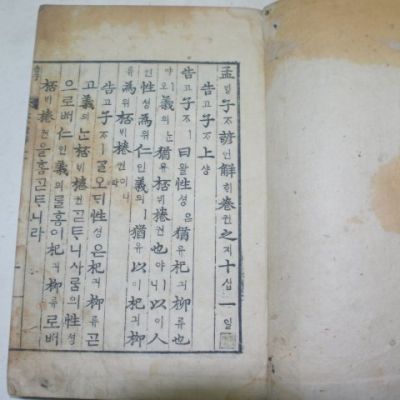 孟ᄆᆡᆼ子ᄌᆞ諺언解ᄒᆡ卷권之지十십一일
告고子ᄌᆞ上샹
告고子ᄌᆞㅣ曰왈性셩은猶유杞긔柳류也
야ㅣ오義의ᄂᆞᆫ猶유桮비棬권也야ㅣ니以이人
인性셩爲위仁인義의ㅣ猶유以이杞긔柳
류爲위桮비棬권이니라
告고子ᄌᆞㅣᄀᆞᆯ오ᄃᆡ性셩은杞긔柳류ᄀᆞᆮ
고義의ᄂᆞᆫ桮비棬권ᄀᆞᆮᄐᆞ니사ᄅᆞᆷ의性셩
으로ᄡᅥ仁인義의ᄅᆞᆯ홈이杞긔柳류로ᄡᅥ
桮비棬권을홈ᄀᆞᆮᄐᆞ니라